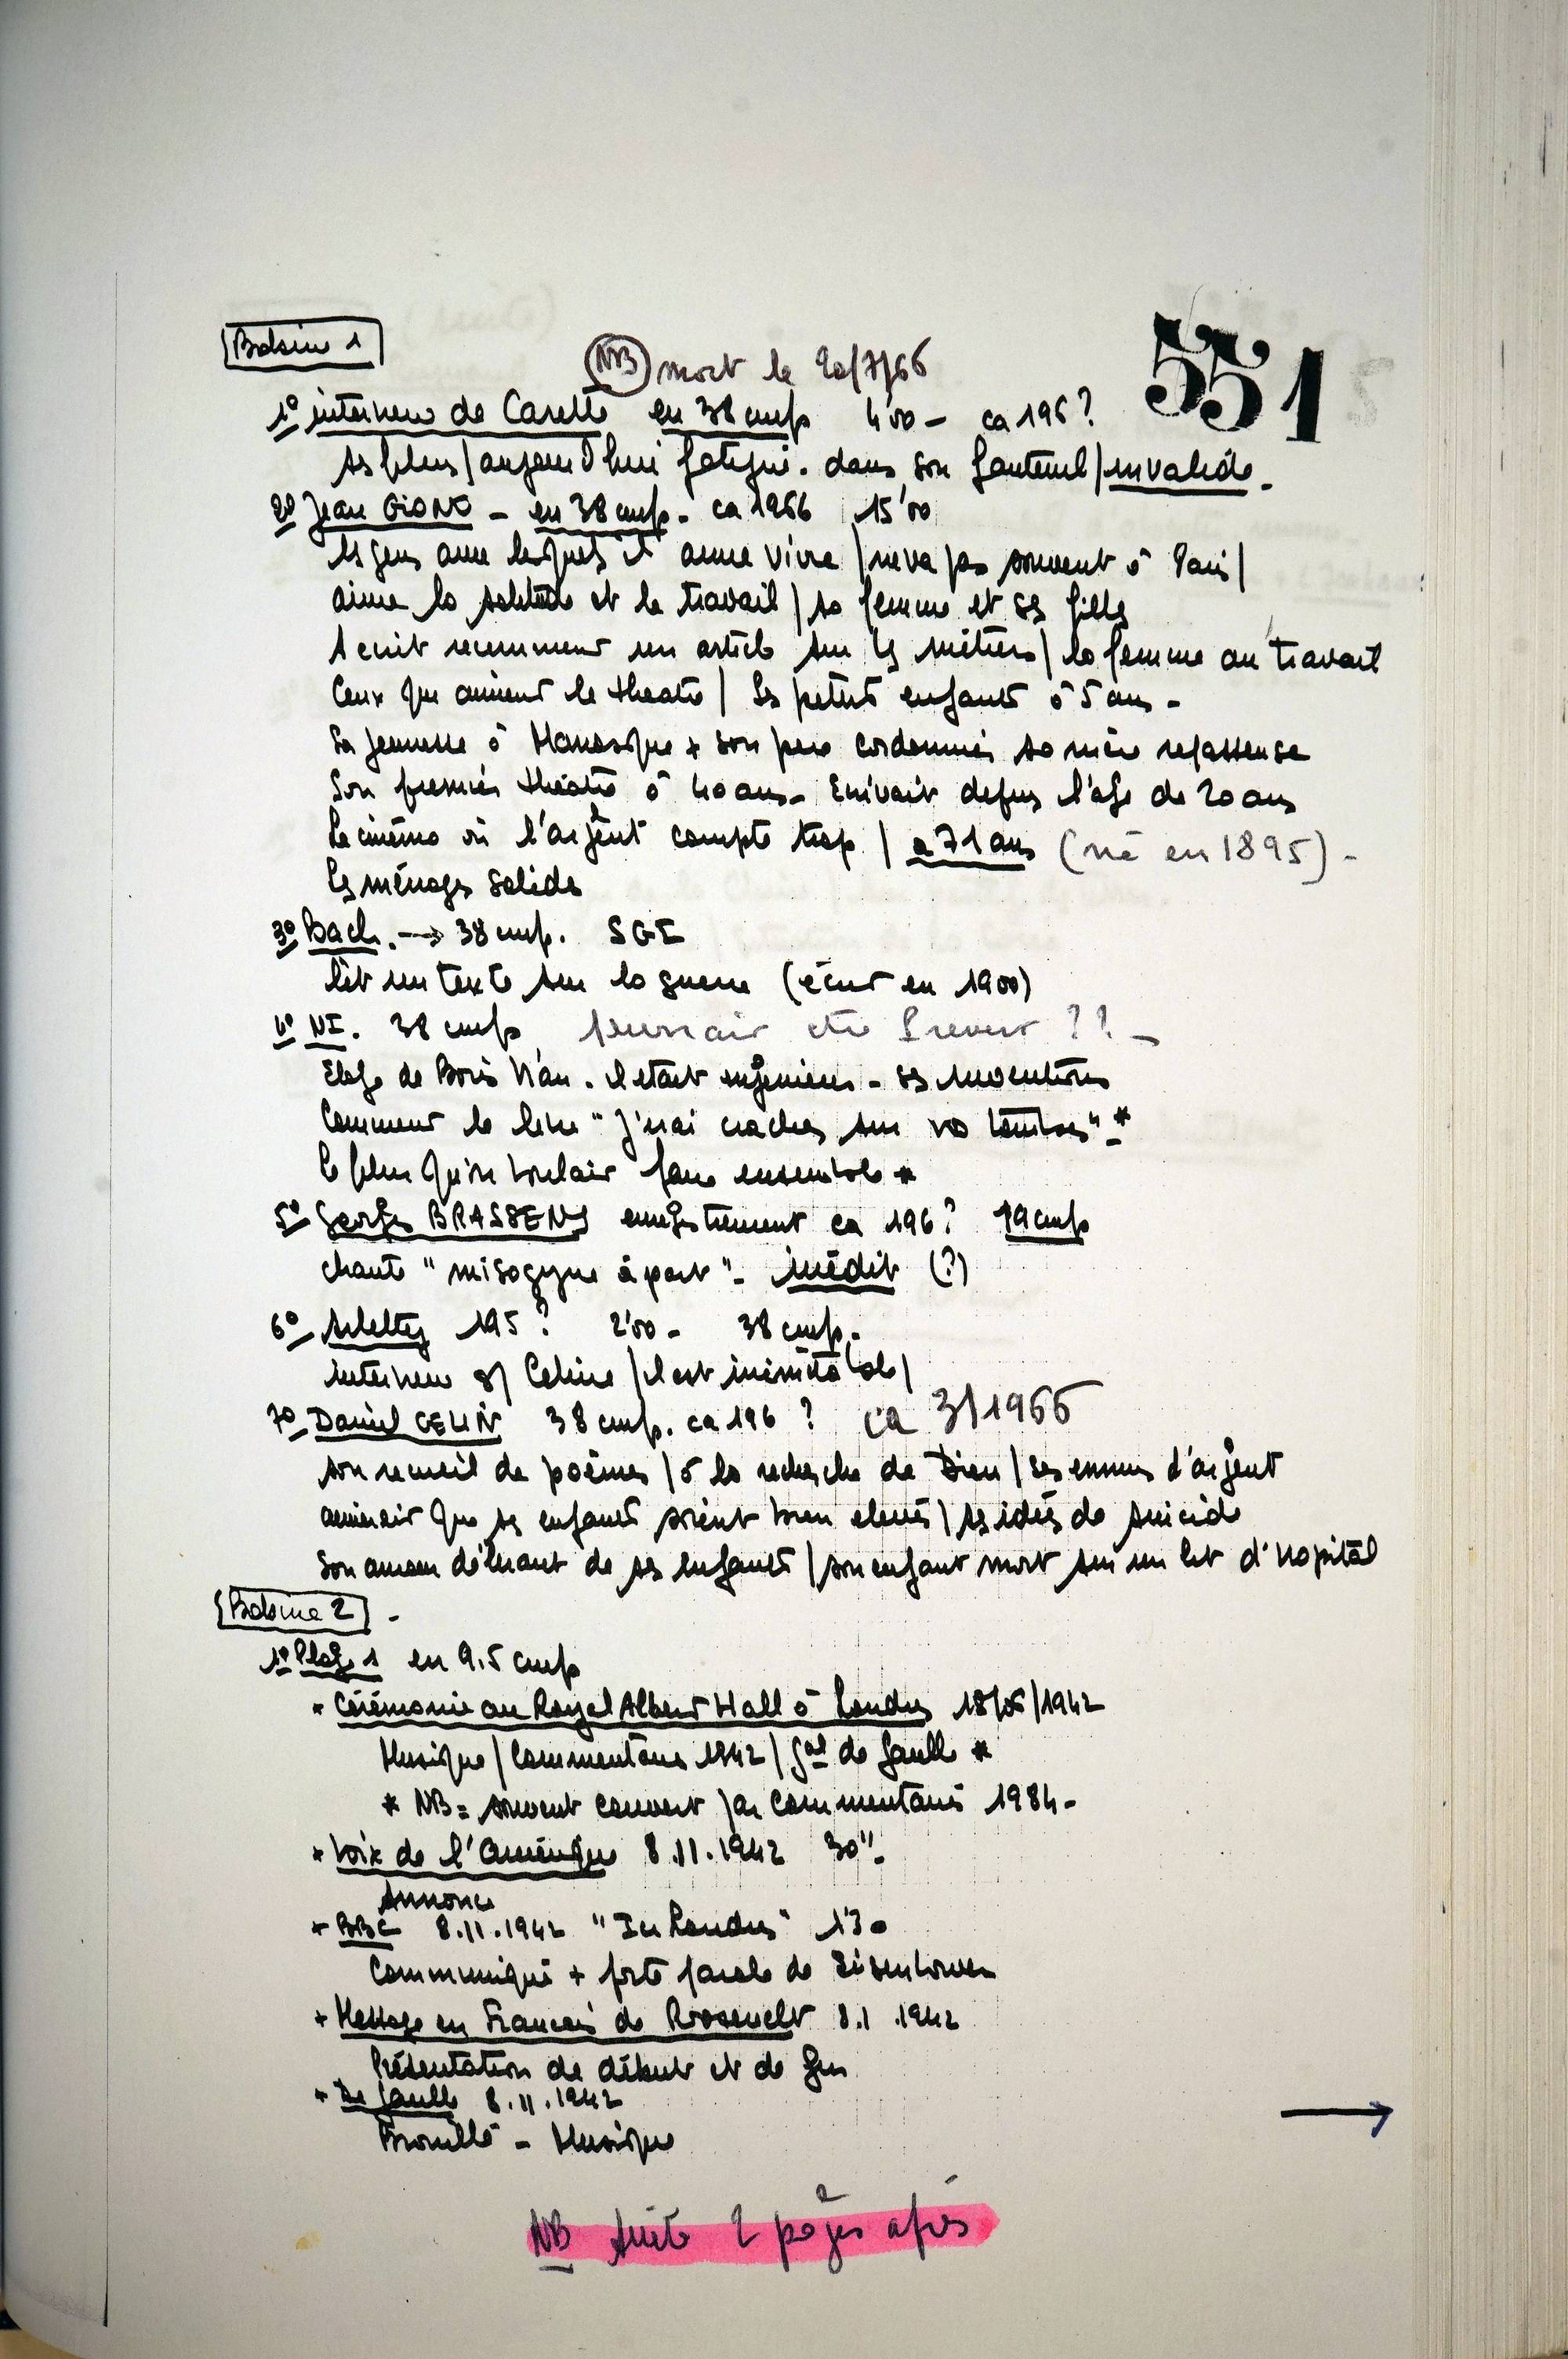 Bobine 1
551
NB mort le 20/7/66
1° interview de Carette en 38 cm/s 4'00 - ca 196?
ses films / aujourd'hui fatigué. dans son fauteuil / invalide -
2° Jean GIONO - en 38 cm/s. ca 1966 15'00
les gens avec lesquels il aime vivre / ne va pas souvent à Paris /
aime la solitude et le travail / sa femme et ses filles
A écrit récemment un article sur les métiers / la femme au travail
Ceux qui aiment le théâtre / les petits enfants à 5 ans -
Sa jeunesse à Manosque + son père cordonnier sa mère repasseuse
Son premier théâtre à 40 ans - Ecrivait depuis l'âge de 20 ans
Le cinéma où l'argent compte trop / a 71 ans (né en 1895) -
Les ménages solides
3° Bach. → 38 cm/s. SGI
lit un texte sur la guerre (écrit en 1900)
4° NI. 38 cm/s pourrait être Prévert ?? -
Eloge de Boris Vian. il était ingénieur - ses inventions
Comment le livre "J'irai cracher sur vos tombes" - *
le film qu'on voulait faire ensemble *
5° Georges BRASSENS enregistrement ca 196? 19 cm/s
chante "misogyne à part" - inédit (?)
6° Arletty 195? 2'00 - 38 cm/s.
interview s/ Celine / il est inimitable /
7° Daniel GELIN 38 cm/s. ca 196 ? ca 3/1966
son recueil de poèmes / à la recherche de Dieu / ses ennuis d'argent
aimerait que ses enfants soient bien élevés / ses idées de suicide
son amour délirant de ses enfants / son enfant mort sur un lit d'hopital
Bobine 2 -
1° Plage 1 en 9.5 cm/s
* Cérémonie au Royal Albert Hall à Londres 18/06/1942
Musique / Commentaire 1942 / Gal de Gaulle *
* NB = souvent couvert par commentaires 1984 -
+ Voix de l'Amérique 8.11.1942 30" -
Annonce
+ BBC 8.11.1942 "Ici Londres" 1'30
Communiqué + porte parole de Eisenhower
+ Message en Francais de Roosevelt 8.1 .1942
Présentation de début et de fin
+ De Gaulle 8.11.1942
Brouillé - Musique
→
NB suite 2 pages après